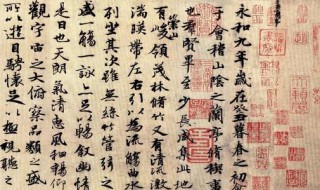 永和九年歲在癸丑暮春之初會
于會稽山陰之蘭亭脩稧事
也羣賢畢至少長咸集此地
有崇山峻領茂林脩竹又有清流激
湍暎帶左右引以為流觴曲水
列坐其次雖無絲竹管弦之
盛一觴一詠上亦足以暢敘幽情
是日也天朗氣清惠風和暢仰
觀宇宙之大俯察品類之盛
所以遊目騁懷足以極視聽之